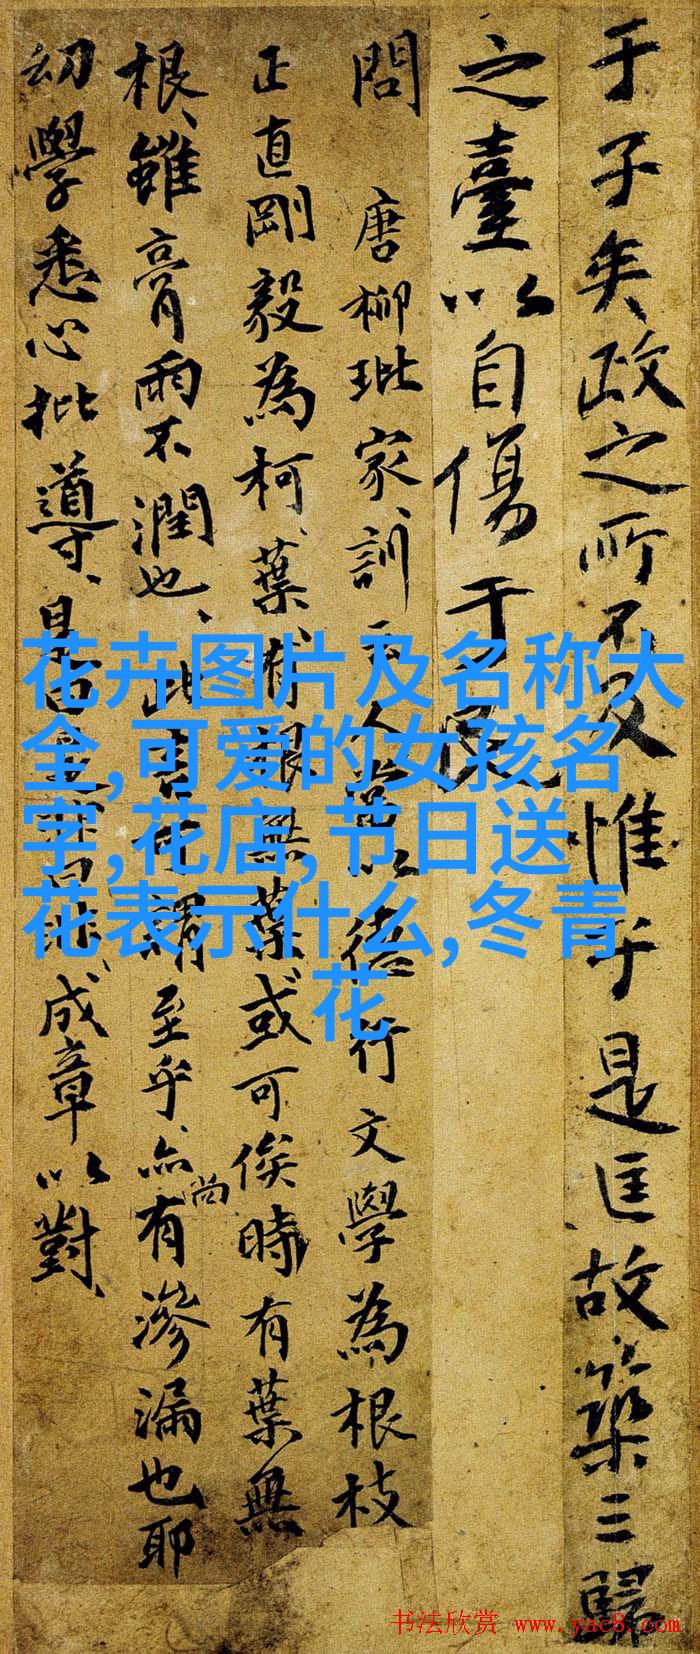 于子矣政之所不及惟于是匡故築三歸
之臺以自傷于民
問 唐柳玭家訓云人當以德行文學為根枝
正直剛毅為柯葉有根無葉或可俟時有葉無
根雖膏雨不潤也此可謂至乎亦尚有滲漏也耶
幼學悉心批導 成章以對
花卉图片及名称大
全,可爱的女孩名
字,花店,节日送
花表示什么,冬青
花
书法欣赏 www.yac8.com